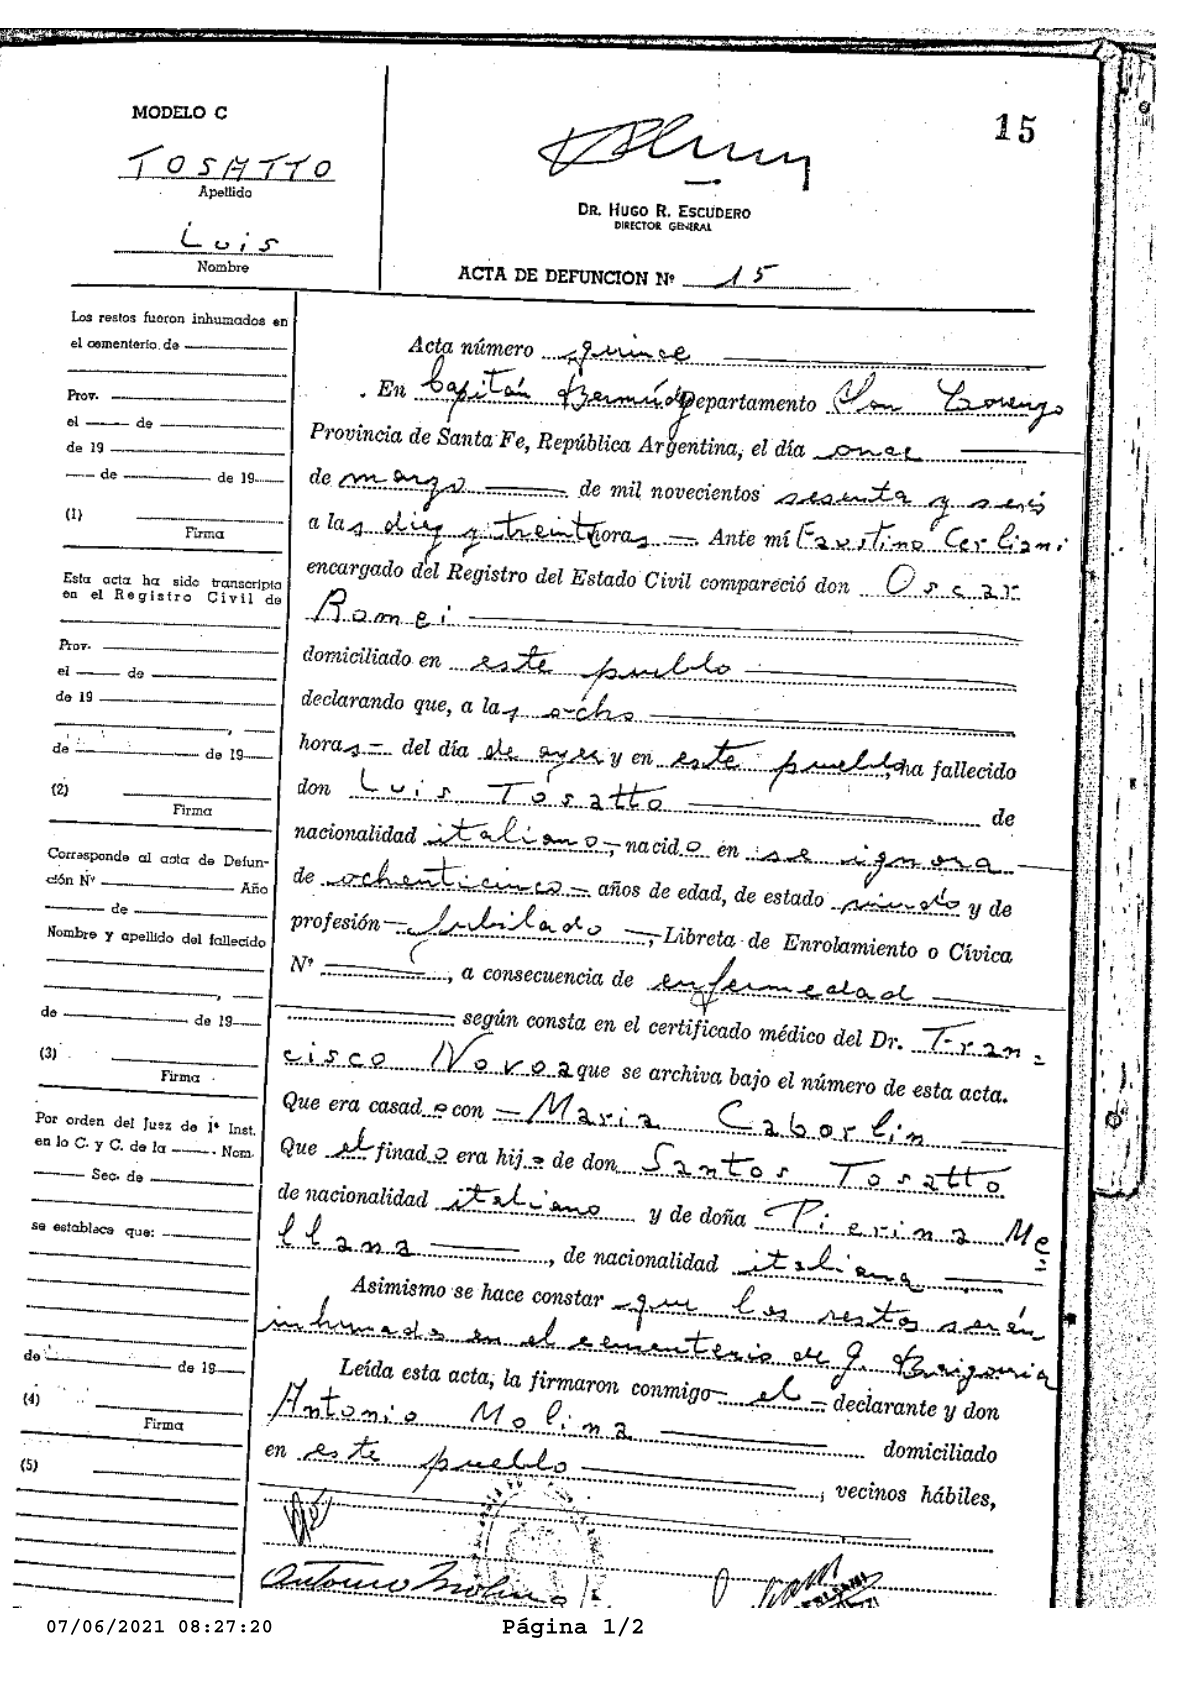 MODELO C
TOSATTO
Apellido
Luis
Nombre
15
DR. HUGO R. ESCUDERO
DIRECTOR GENERAL
ACTA DE DEFUNCION Nº 15
Los restos fueron inhumados en
el cementerio de
Prov.
el de
de 19
de de 19
(1)
Firma
Esta acta ha sido transcripta
en el Registro Civil de
Prov.
el de
de 19
de de 19
(2)
Firma
Corresponde al acta de Defun-
ción Nº Año
de
Nombre y apellido del fallecido
de de 19
(3)
Firma
Por orden del Juez de 1ª Inst.
en lo C. y C. de la Nom.
Sec. de
se establece que:
de de 19
(4)
Firma
(5)
Acta número quince
En Capitán Bermúdez Departamento San Lorenzo
Provincia de Santa Fe, República Argentina, el día once
de marzo de mil novecientos sesenta y seis
a las diez y treinta horas Ante mí Faustino Cerliani
encargado del Registro del Estado Civil compareció don Oscar
Romei
domiciliado en este pueblo
declarando que, a las ocho
horas del día de ayer y en este pueblo, ha fallecido
don Luis Tosatto de
nacionalidad italiano, nacido en se ignora
de ochenticinco años de edad, de estado viudo y de
profesión Jubilado, Libreta de Enrolamiento o Cívica
Nº , a consecuencia de enfermedad
según consta en el certificado médico del Dr. Fran=
cisco Novoa que se archiva bajo el número de esta acta.
Que era casado con Maria Caborlin
Que el finado era hijo de don Santos Tosatto
de nacionalidad italiano y de doña Pierina Me=
llana, de nacionalidad italiana
Asimismo se hace constar que los restos serán
inhumados en el cementerio de G. Baigorria
Leída esta acta, la firmaron conmigo el declarante y don
Antonio Molina domiciliado
en este pueblo, vecinos hábiles,
Antonio Molina
07/06/2021 08:27:20 Página 1/2